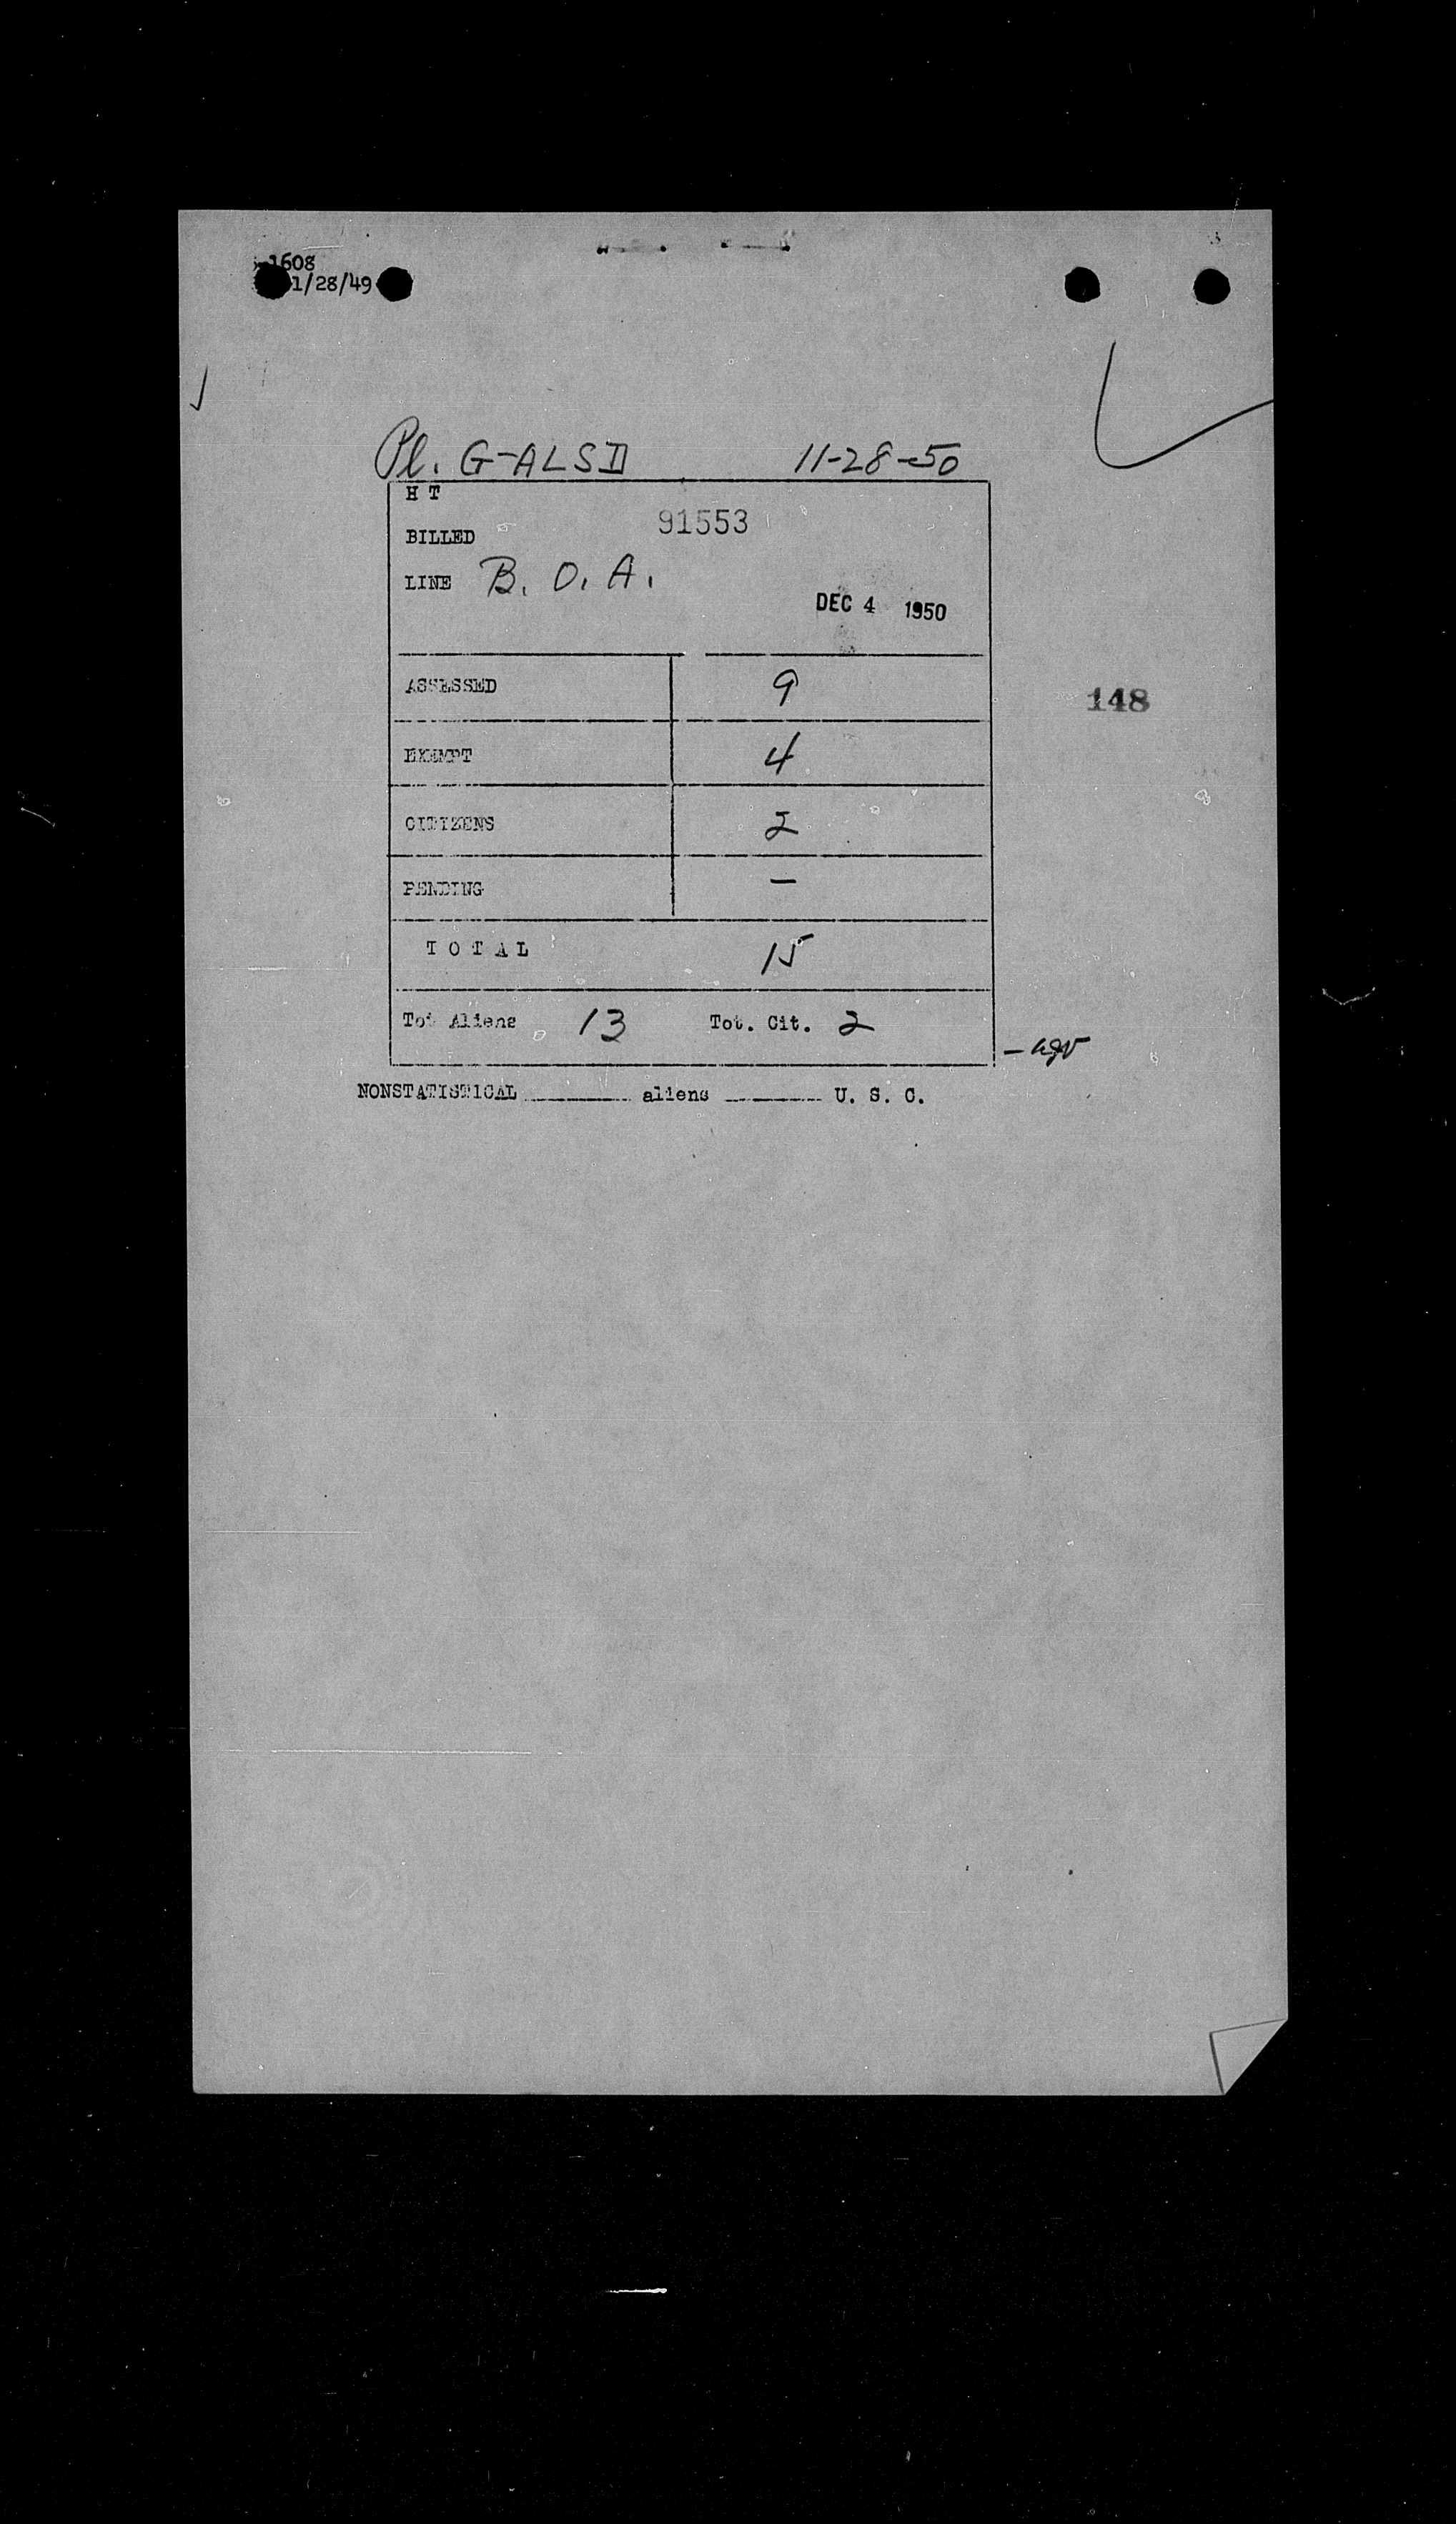 1608
1/28/49
Pl. G-ALSD 11-28-50
H T
BILLED 91553
LINE B. O. A.
DEC 4 1950
ASSESSED 9
148
EXEMPT 4
CITIZENS 2
PENDING -
T O T A L 15
Tot Aliens 13 Tot. Cit. 2
NONSTATISTICAL aliens U. S. C.